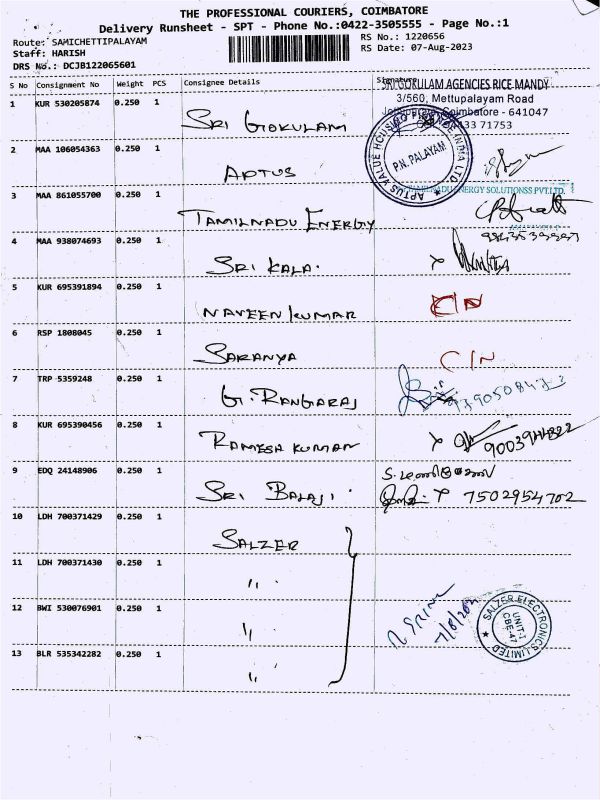 THE PROFESSIONAL COURIERS, COIMBATORE
Delivery Runsheet - SPT - Phone No.:0422-3505555 - Page No.:1
Route: SAMICHETTIPALAYAM
RS No.: 1220656
Staff: HARISH
RS Date: 07-Aug-2023
DRS No.: DCJB122065601
S No Consignment No Weight PCS Consignee Details Signature
SRI GOKULAM AGENCIES RICE MANDY
3/560, Mettupalayam Road
Coimbatore - 641047
33 71753
1 KUR 530205874 0.250 1 SRI GOKULAM
APTUS VALUE HOUSING FINANCE INDIA LTD
P.N. PALAYAM
2 MAA 106054363 0.250 1 APTUS
3 MAA 861055700 0.250 1 TAMILNADU ENERGY
TAMILNADU ENERGY SOLUTIONSS PVT.LTD.
4 MAA 938074693 0.250 1 SRI KALA.
5 KUR 695391894 0.250 1 NAVEEN KUMAR
6 RSP 1808045 0.250 1 SARANYA C/N
7 TRP 5359248 0.250 1 G. RANGARAJ
8 KUR 695390456 0.250 1 RAMESH KUMAR
9 EDQ 24148906 0.250 1 SRI BALAJI.
7502954702
10 LDH 700371429 0.250 1 SALZER
11 LDH 700371430 0.250 1 "
12 BWI 530076901 0.250 1 "
13 BLR 535342282 0.250 1 "
SALZER ELECTRONICS LIMITED
UNIT-I
CBE-47